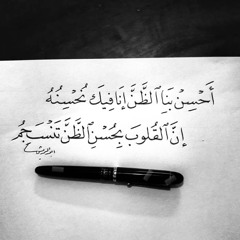 أَحْسِنْ بِنَا ٱلظَّنَّ إِنَّا فِيكَ نُحْسِنُهُ
إِنَّ ٱلْقُلُوبَ بِحُسْنِ ٱلظَّنِّ تَنْسَجِمُ